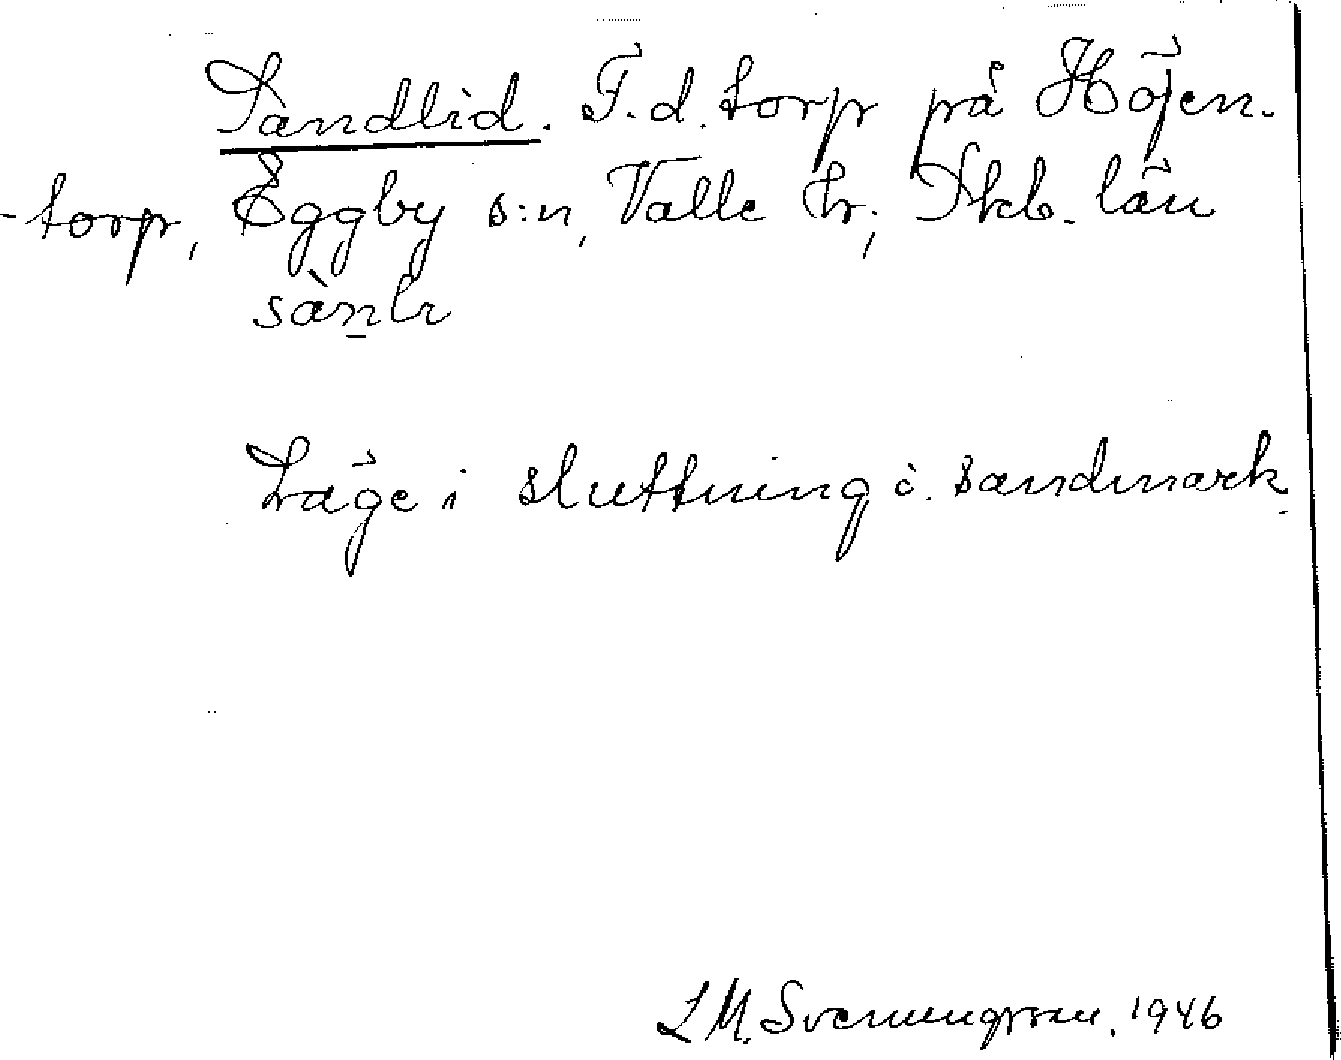 Sandlid. F.d. torp på Höjen-
-torp, Eggby s:n, Valle hr, Skb. län
sàn̲lɩ
Läge i sluttning o. sandmark.
L M. Svenungsson, 1946